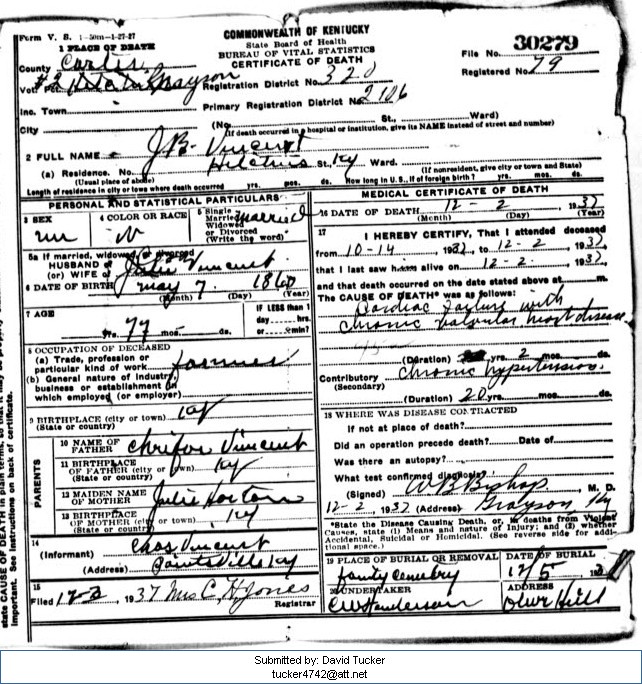 Form V. S. 1-50m-1-27-27
COMMONWEALTH OF KENTUCKY
State Board of Health
BUREAU OF VITAL STATISTICS
CERTIFICATE OF DEATH
1 PLACE OF DEATH
File No. 30279
Registered No. 79
County Carter
Vot. Pct. Grayson
Registration District No. 320
Inc. Town
Primary Registration District No. 2106
City (No. St., Ward)
(If death occurred in a hospital or institution, give its NAME instead of street and number)
2 FULL NAME J.B. Vincent
(a) Residence. No. Hitchins St., Ky Ward.
(Usual place of abode) (If nonresident, give city or town and State)
Length of residence in city or town where death occurred yrs. mos. ds. How long in U. S., if of foreign birth? yrs. mos. ds.
PERSONAL AND STATISTICAL PARTICULARS
3 SEX m
4 COLOR OR RACE W
5 Single Married Widowed or Divorced (Write the word) married
5a If married, widowed, or divorced
HUSBAND of
(or) WIFE of Vincent
6 DATE OF BIRTH May 7, 1860
(Month) (Day) (Year)
7 AGE
77 yrs. mos. ds.
IF LESS than 1
day hrs.
or min?
8 OCCUPATION OF DECEASED
(a) Trade, profession or
particular kind of work farmer
(b) General nature of industry,
business or establishment in
which employed (or employer)
9 BIRTHPLACE (city or town) Ky
(State or country)
PARENTS
10 NAME OF
FATHER Vincent
11 BIRTHPLACE
OF FATHER (city or town) Ky
(State or country)
12 MAIDEN NAME
OF MOTHER Julie Horton
13 BIRTHPLACE
OF MOTHER (city or town) Ky
(State or country)
14
(Informant) Chas Vincent
(Address) Paintsville Ky
15
Filed 12-3, 1937 Mrs C. H. Jones
Registrar
MEDICAL CERTIFICATE OF DEATH
16 DATE OF DEATH 12 - 2 1937
(Month) (Day) (Year)
17
I HEREBY CERTIFY, That I attended deceased
from 10-14 1937, to 12-2 1937,
that I last saw him alive on 12-2 1937,
and that death occurred on the date stated above at m.
The CAUSE OF DEATH* was as follows:
Cardiac failure with
chronic valvular heart disease
(Duration) yrs. 2 mos. ds.
Contributory chronic hypertension
(Secondary)
(Duration) 20 yrs. mos. ds.
18 WHERE WAS DISEASE CONTRACTED
If not at place of death?
Did an operation precede death? Date of
Was there an autopsy?
What test confirmed diagnosis?
(Signed) Bishop, M. D.
12-2, 1937 (Address) Grayson, Ky
*State the Disease Causing Death, or, in deaths from Violent
Causes, state (1) Means and nature of Injury; and (2) whether
Accidental, Suicidal or Homicidal. (See reverse side for addi-
tional space.)
19 PLACE OF BURIAL OR REMOVAL
family cemetery
DATE OF BURIAL
12/5, 193
20 UNDERTAKER
Henderson
ADDRESS
Olive Hill
state CAUSE OF DEATH in plain terms, so that it may be properly
important. See instructions on back of certificate.
Submitted by: David Tucker
tucker4742@att.net